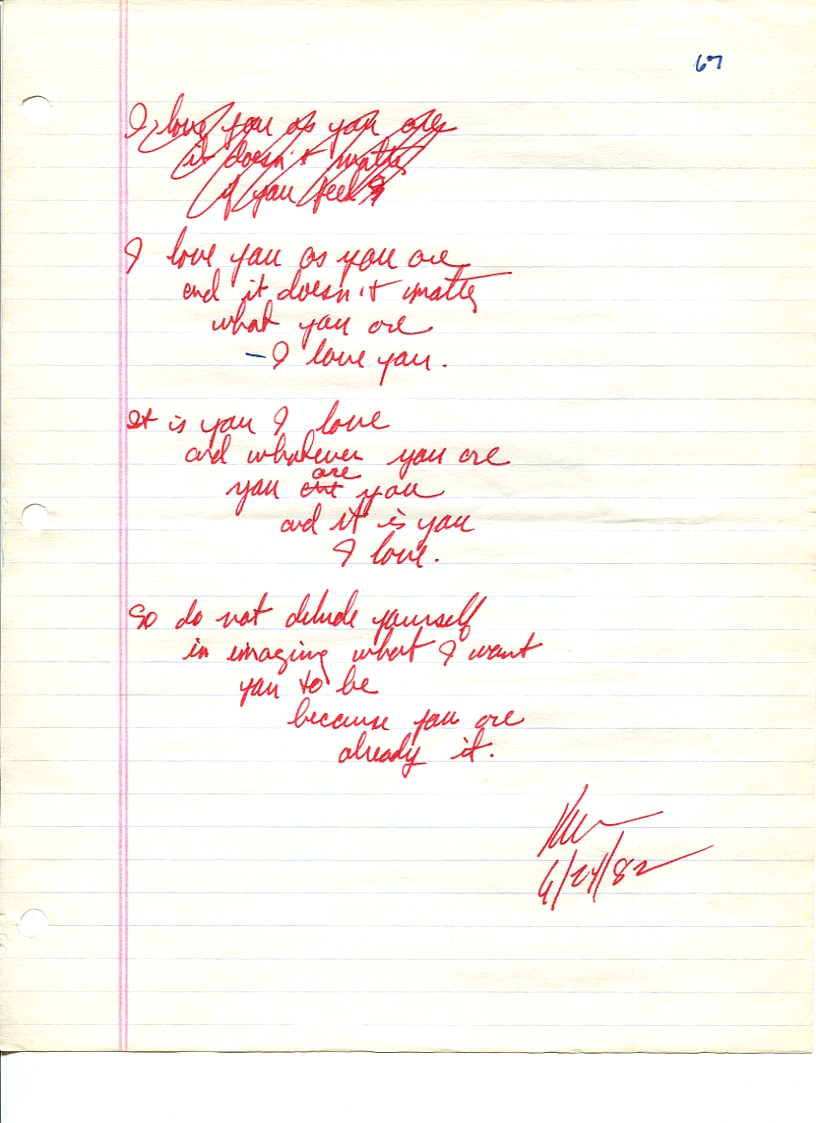 67
I love you as you are
it doesn't matter
if you feel
I love you as you are
and it doesn't matter
what you are
– I love you.
It is you I love
and whatever you are
you are you
and it is you
I love.
So do not delude yourself
in imazing what I want
you to be
because you are
already it.
6/24/82